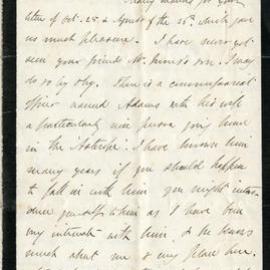 Many thanks for your
letter of Oct. 25 &
us much pleasure. I have never yet
seen your friend Mr. son. I may
do so by & by. There is a commissariat
officer named Adams with his wife
a particularly nice person going home
in the Asterope. I have known him
many years if you should happen
to fall in with him you might intro-
duce yourselfs to him as I have been
very intimate with him, & he knows
much about me & my place here.